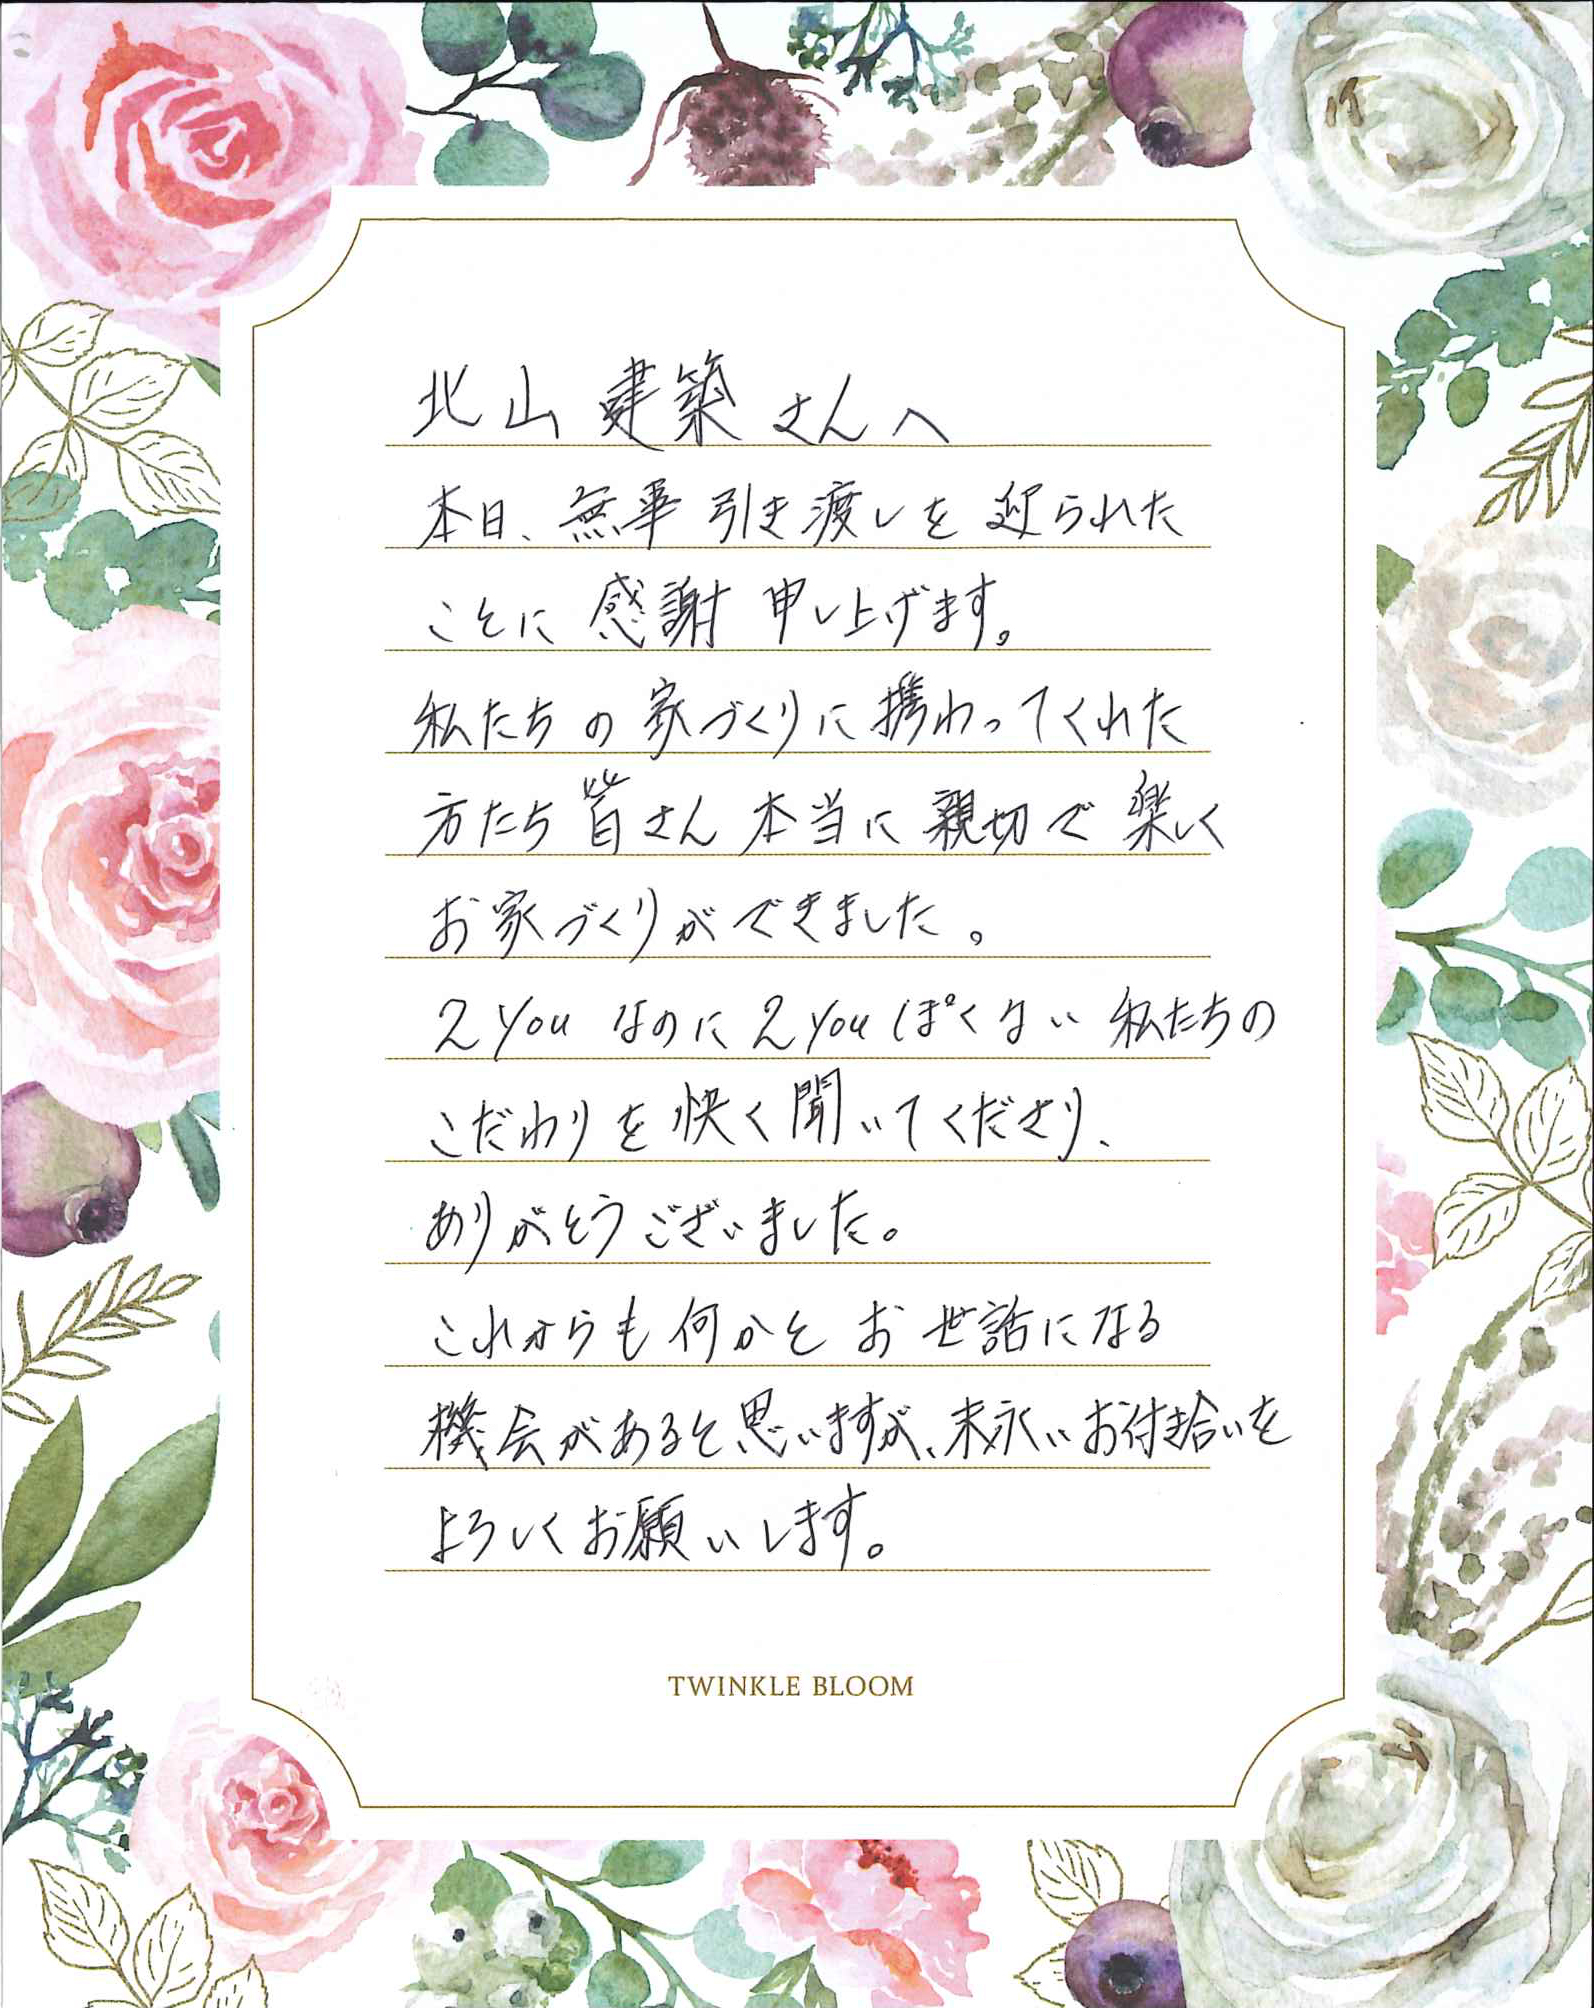 北山建築さんへ
本日、無事引き渡しを迎られた
ことに感謝申し上げます。
私たちの家づくりに携わってくれた
方たち皆さん本当に親切で楽しく
お家づくりができました。
2youなのに2youぽくない私たちの
こだわりを快く聞いてくださり、
ありがとうございました。
これからも何かとお世話になる
機会があると思いますが、末永いお付き拾いを
よろしくお願いします。
TWINKLE BLOOM